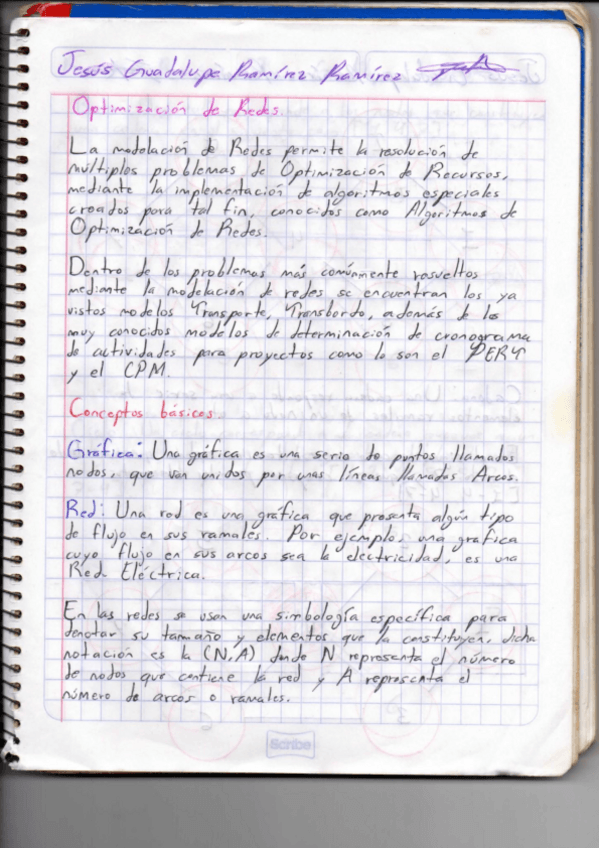 Jesús Guadalupe Ramírez Ramírez
Optimización de Redes.
La modelación de Redes permite la resolución de
múltiplos problemas de Optimización de Recursos,
mediante la implementación de algoritmos especiales
creados para tal fin, conocidos como Algoritmos de
Optimización de Redes.
Dentro de los problemas más comúnmente resueltos
mediante la modelación de redes se encuentran los ya
vistos modelos Transporte, Transbordo, además de los
muy conocidos modelos de determinación de cronograma
de actividades para proyectos como lo son el PERT
y el CPM.
Conceptos básicos
Gráfica: Una gráfica es una serie de puntos llamados
nodos, que van unidos por unas líneas llamadas Arcos.
Red: Una red es una gráfica que presenta algún tipo
de flujo en sus ramales. Por ejemplo, una gráfica
cuyo flujo en sus arcos sea la electricidad, es una
Red Eléctrica.
En las redes se usan una simbología específica para
denotar su tamaño y elementos que la constituyen, dicha
notación es la (N,A) donde N representa el número
de nodos que contiene la red y A representa el
número de arcos o ramales.
Scribe